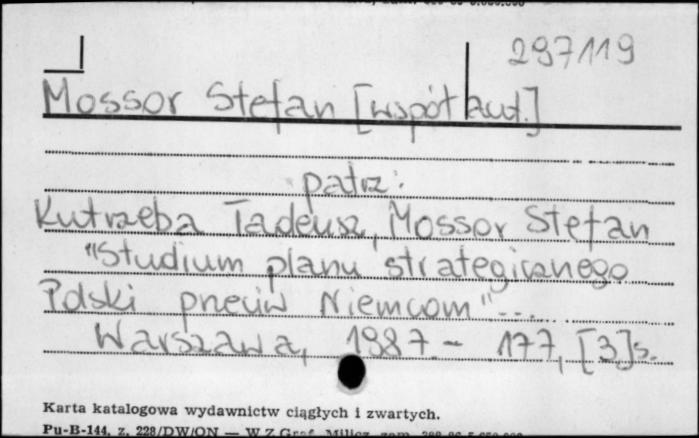 297119
Mossor Stefan [współaut.]
patrz:
Kutrzeba Tadeusz, Mossor Stefan
"Studium planu strategicznego
Polski przeciw Niemcom"...
Warszawa, 1987.- 177, [3]s.
Karta katalogowa wydawnictw ciągłych i zwartych.
Pu-B-144, z. 228/DW/ON — W.Z.Graf. Milicz, zam.